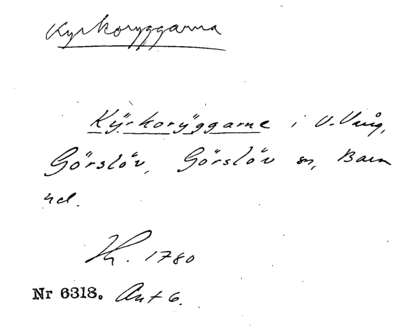 Kyrkoryggarna
Kÿrkorÿggarne i V. Vång,
Görslöv, Görslöv sn, Bara
hd.
1780
Nr 6318. Akt 6.